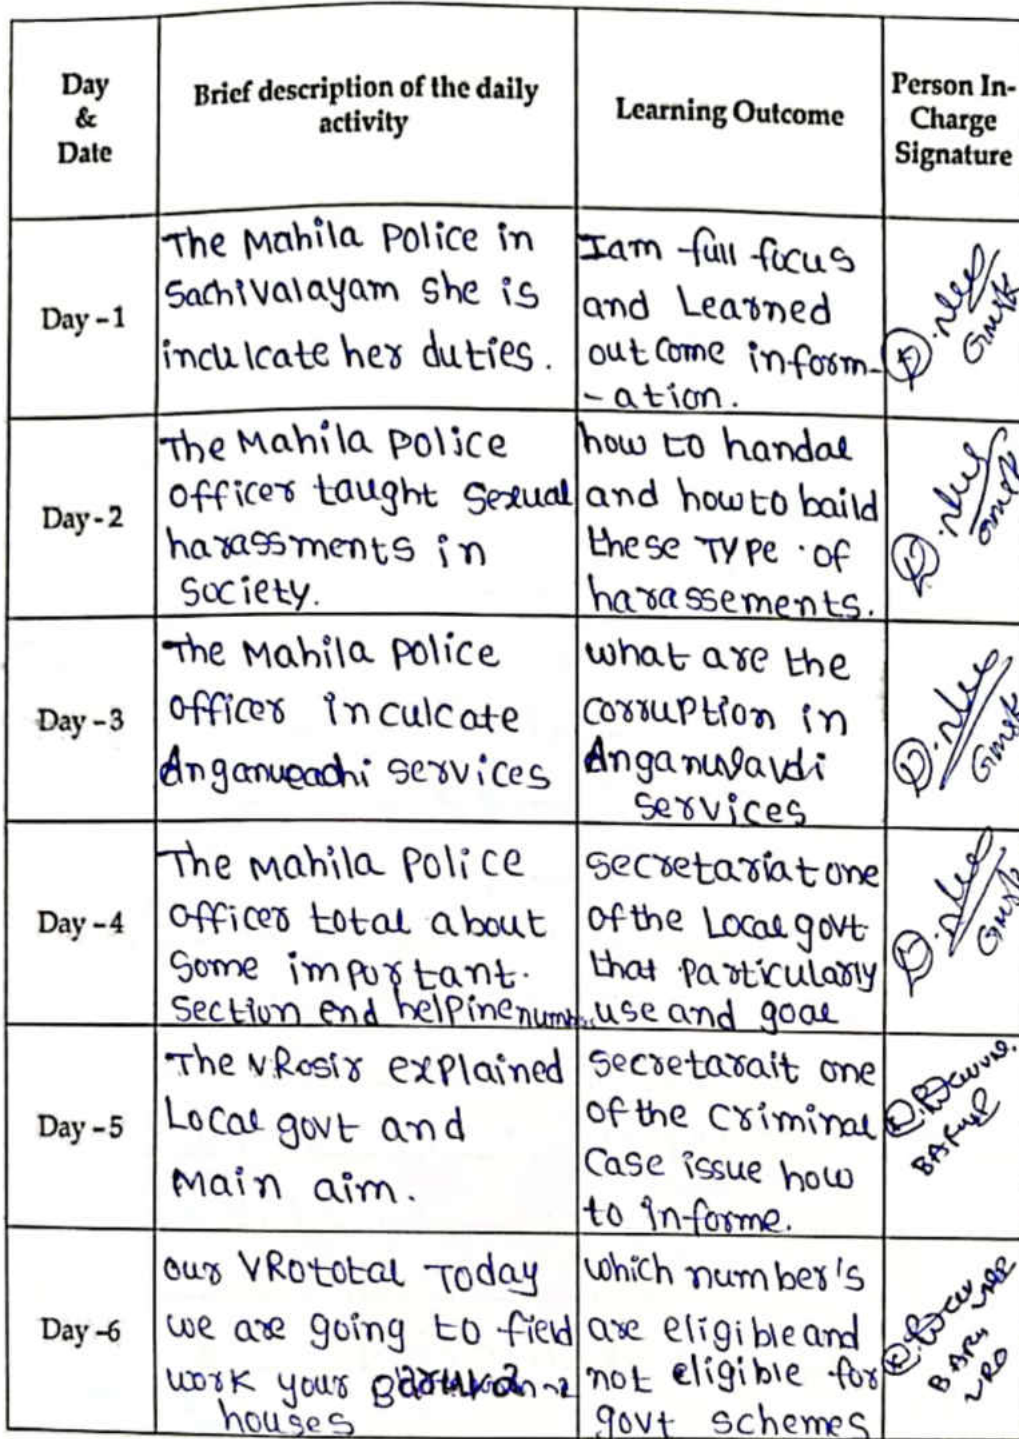 Day
&
Date
Brief description of the daily
activity
Learning Outcome
Person In-
Charge
Signature
Day - 1
The Mahila Police in
Sachivalayam she is
inculcate her duties.
Iam full focus
and Learned
outcome inform-
- ation.
Day - 2
The Mahila Police
officer taught Sexual
harassments in
Society.
how to handal
and how to baild
these TYPE of
harassements.
Day - 3
The Mahila Police
officer inculcate
services
what are the
corruption in
services
Day - 4
The Mahila Police
officer total about
Some important.
Section end helpine
secretariat one
of the Local govt
that particularly
use and goal
Day - 5
The VRosir explained
Local govt and
Main aim.
secretarait one
of the criminal
case issue how
to informe.
Day -6
our VRototal Today
we are going to field
work your
houses
which number's
are eligible and
not eligible for
govt schemes